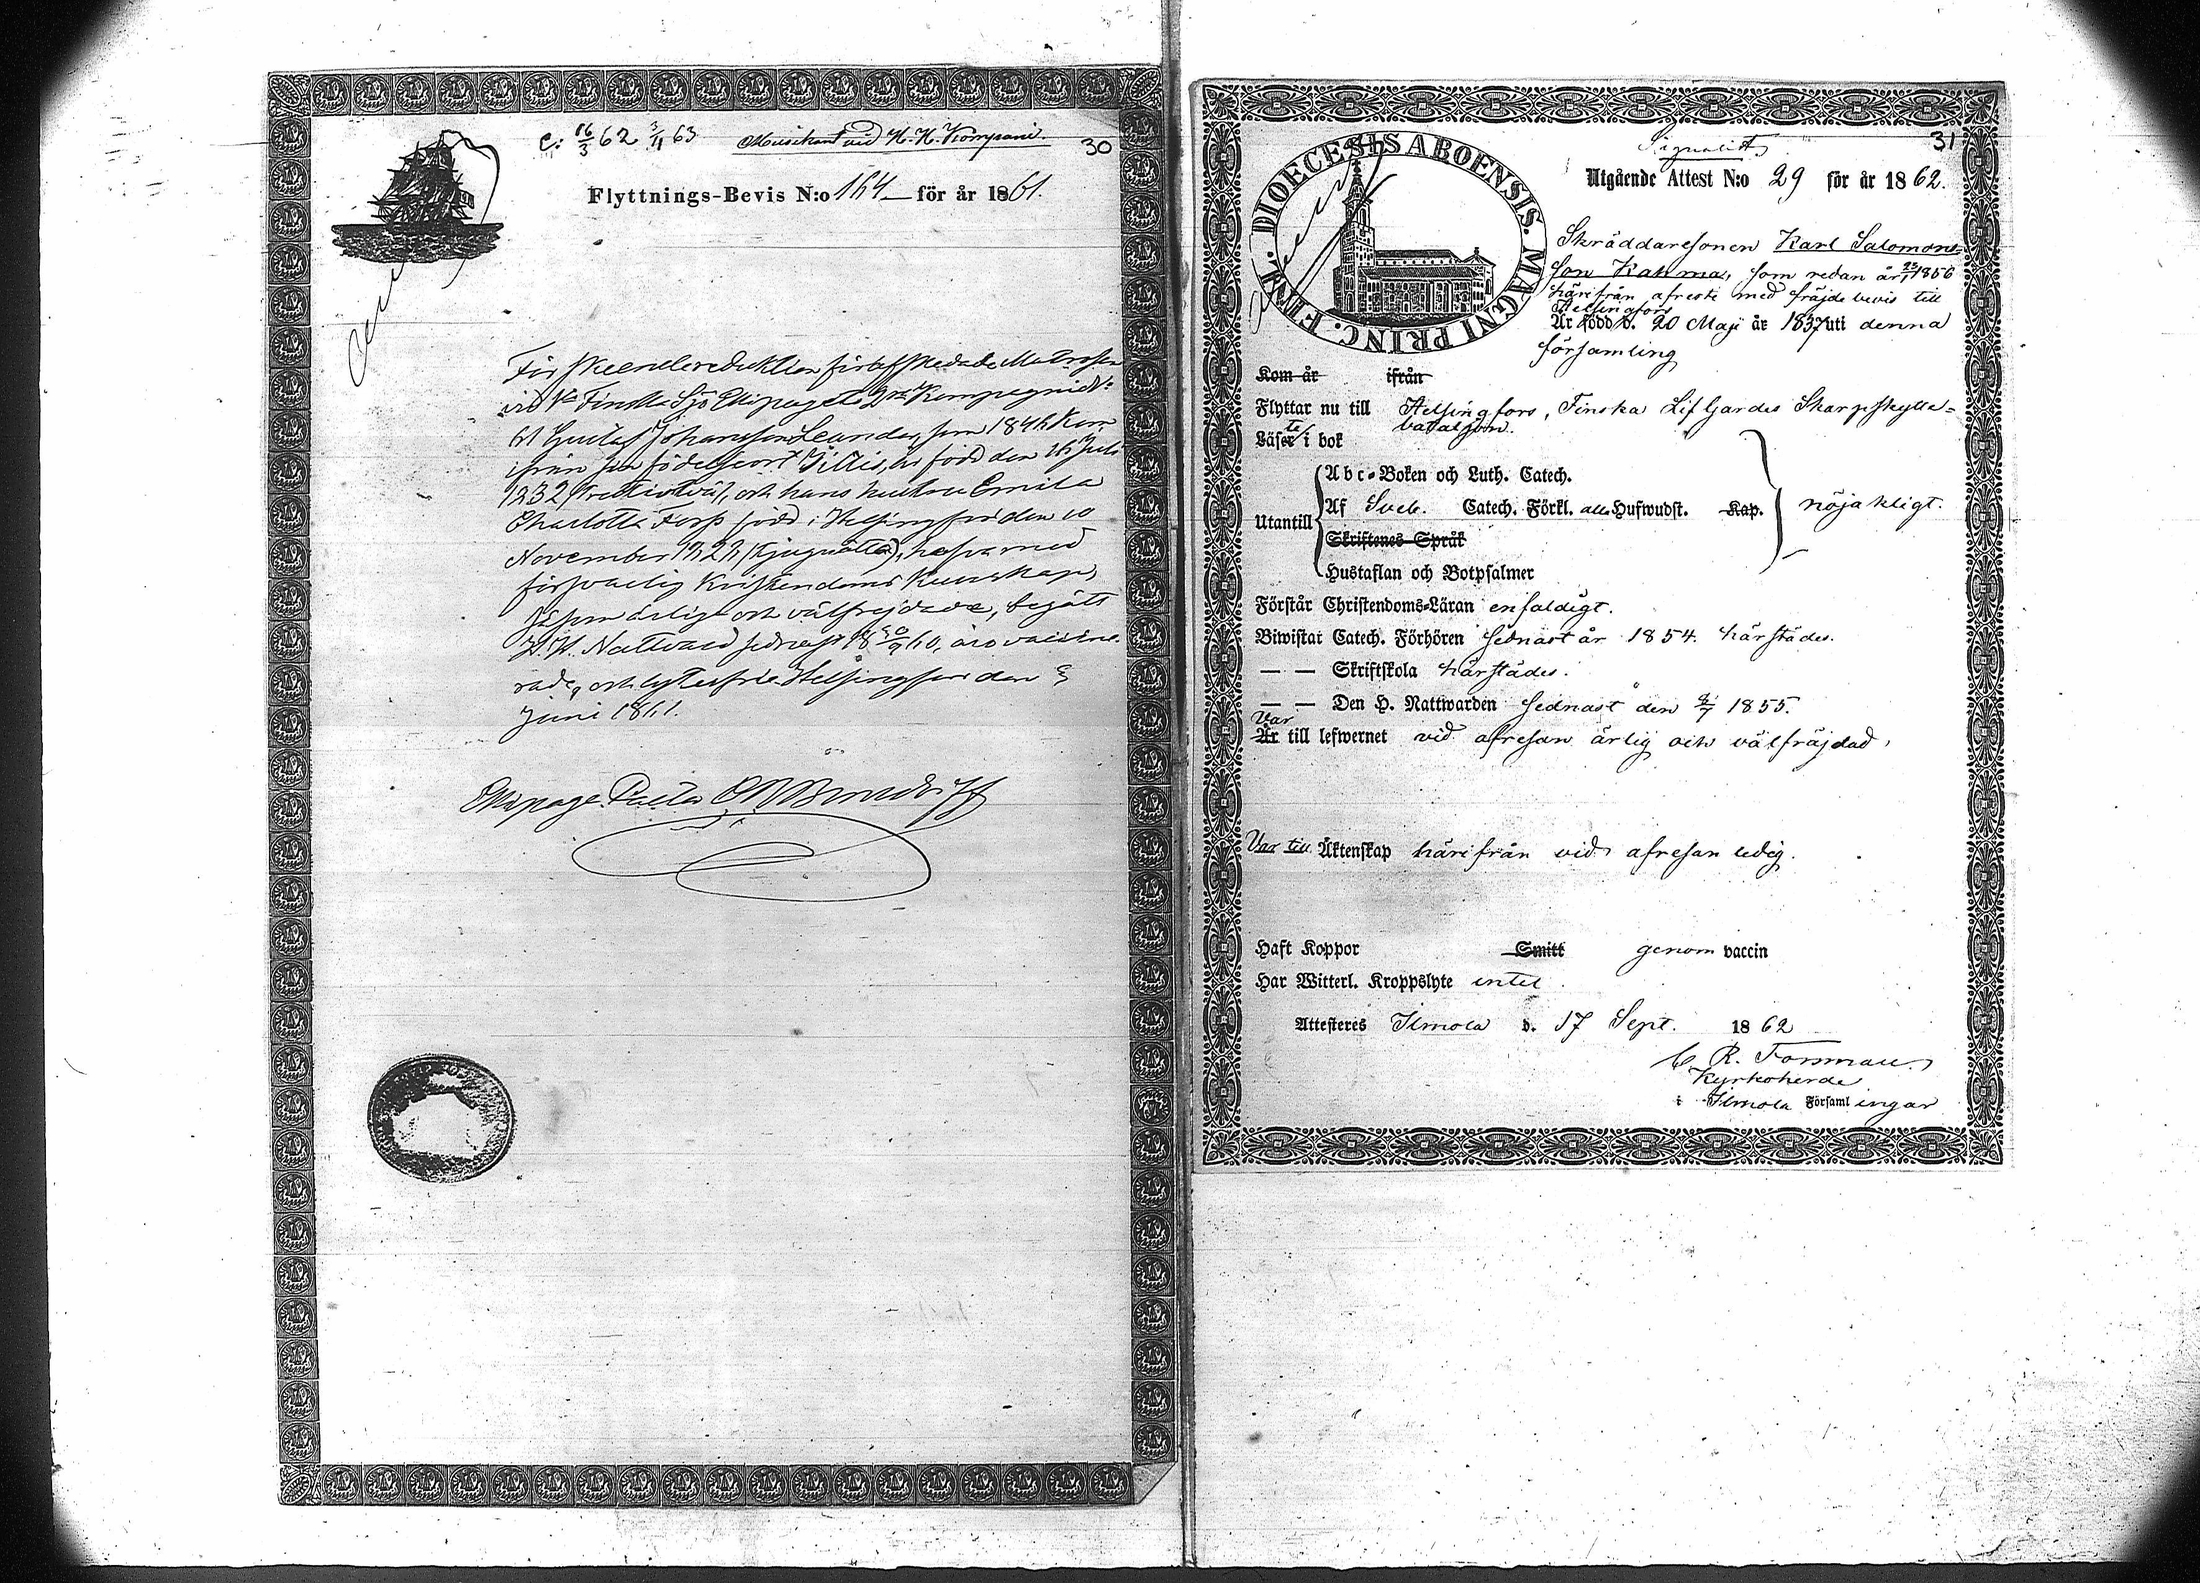 C: 16/3 62 3/11 63 Musikant vid H. H. Kompani.
30
Flyttnings-Bevis N:o 164 för år 1861.
För skeende reduktion förafskedade Matrosen
vid 1a Finska Sjö Ekipagets 2ra Kompagni
Gustaf Johansson Leander, som 184 kom
ifrån sin födelseort, är född den 16 Juli
1832 (trettiotvå), och hans hustru Emila
Charlotta Forss född i Helsingfors den 10
November 182 (tjuguåtta), hafva med
försvarlig Kristendoms Kunskap,
såsom ärlige och välfrejdade, begått
H. H. Nattvard sednast 18 30/9 60, äro vaccine-
rade, och lytesfrie Helsingfors den
Juni 1861.
Ekipage Pastor
DIOECESIS ABOENSIS. MAGNI PRINC. FINL.
Signalist
31
Utgående Attest N:o 29 för år 1862.
Skräddaresonen Karl Salomons-
son Kahma, som redan år 23/1 1856
härifrån afreste med fräjdebevis till
Helsingfors
Är född d. 20 Maji år 1837 uti denna
församling
Kom år ifrån
Flyttar nu till Helsingfors, Finska Lif Gardes Skarpskytte-
bataljon.
Läser te i bok
Abc-Boken och Luth. Catech.
Utantill Af Sveb. Catech. Förkl. alla Hufwudst. Kap. nöjaktigt.
Skriftenes Språk
Hustaflan och Botpsalmer
Förstår Christendoms-Läran enfaldigt.
Biwistat Catech. Förhören sednast år 1854. härstädes.
— — Skriftskola härstädes.
— — Den H. Nattwarden sednast den 1855.
Var
Är till lefwernet vid afresan ärlig och välfräjdad,
Var till Äktenskap härifrån vid afresan ledig.
Haft Koppor Smitt genom vaccin
Har Witterl. Kroppslyte intet
Attesteres Ilmola d. 17 Sept. 1862
C. R. Forsman
Kyrkoherde
i Ilmola Församl ingar